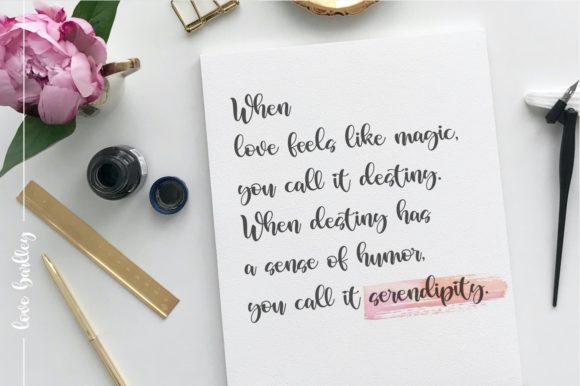 When
love feels like magic,
you call it destiny.
When destiny has
a sense of humor,
you call it serendipity.
love Bartley